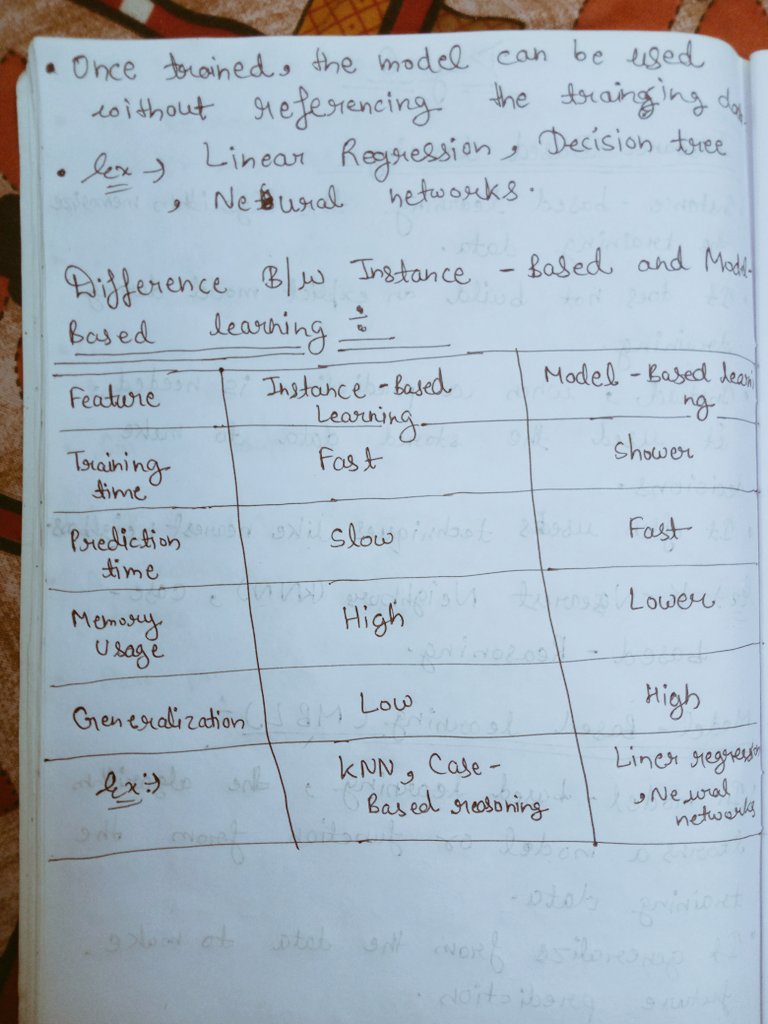 • Once trained, the model can be used
without referencing the training da
• Ex → Linear Regression, Decision tree
, Neural networks.
Difference B/w Instance - Based and Model-
Based learning ÷
Feature | Instance - Based Learning | Model - Based learning
Training time | Fast | Shower
Prediction time | Slow | Fast
Memory Usage | High | Lower
Generalization | Low | High
Ex :→ | KNN, Case - Based reasoning | Liner regression, Neural networks